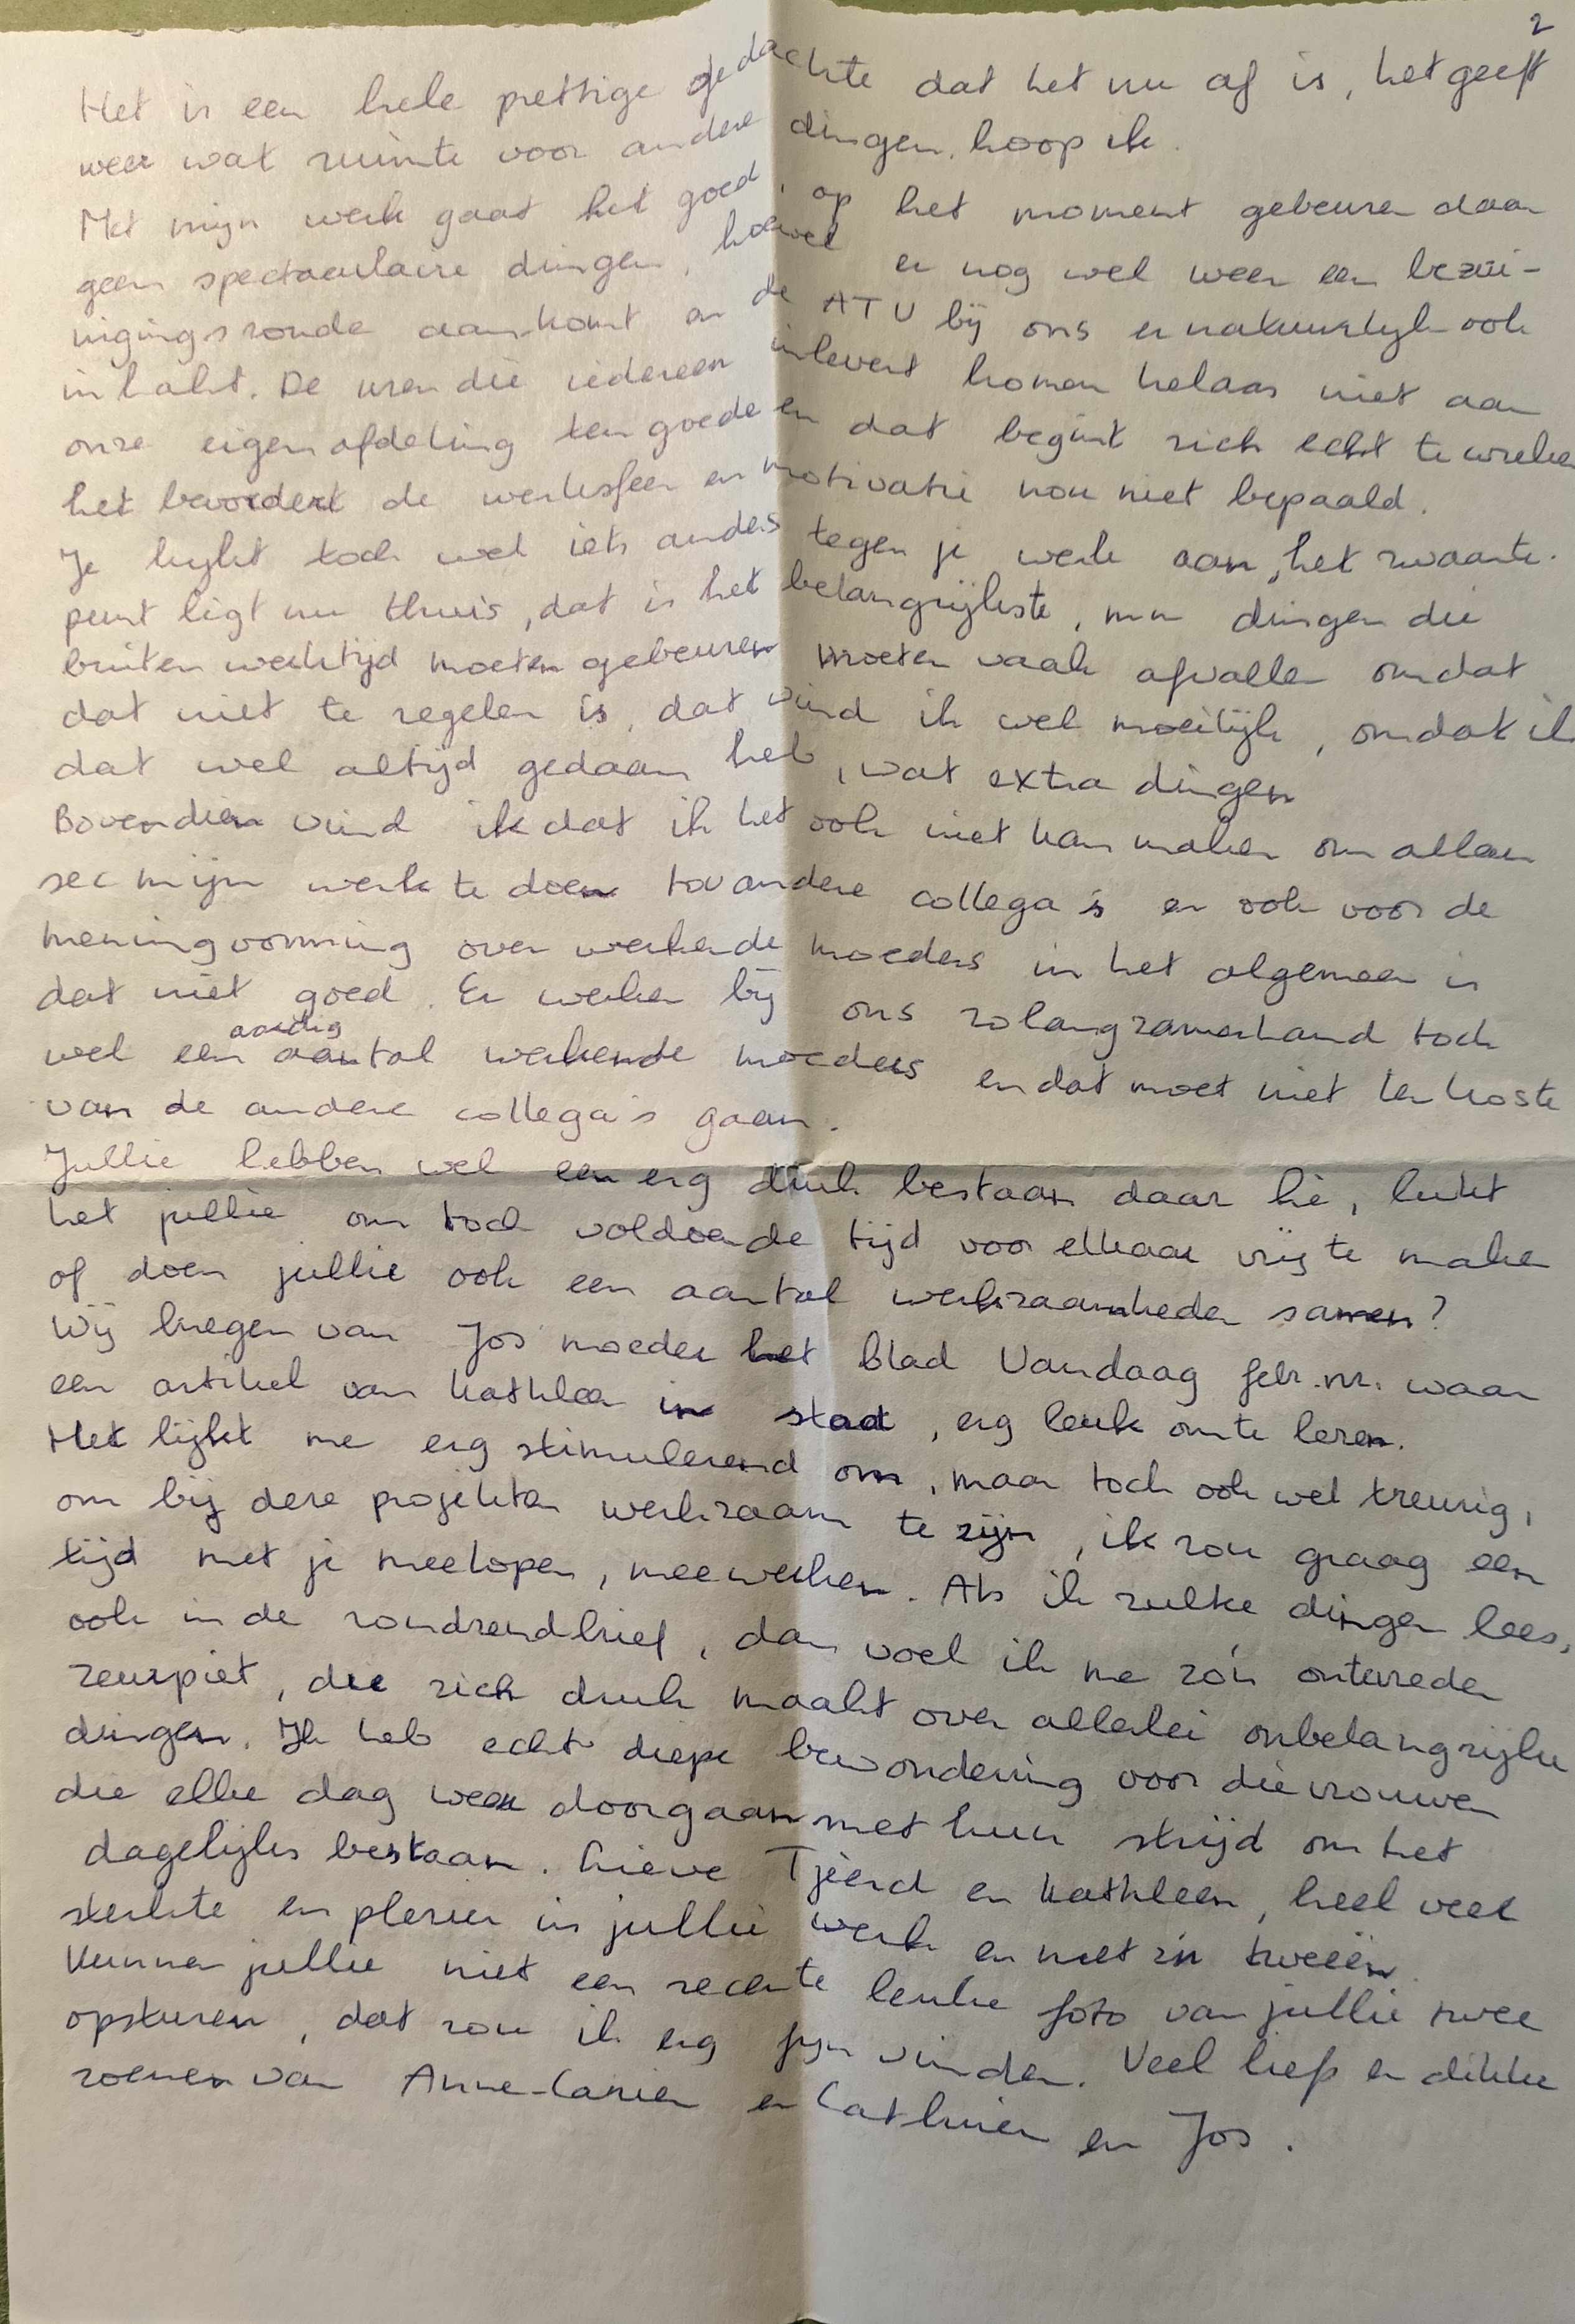 2
Het is een hele prettige gedachte dat het nu af is, het geeft
weer wat ruimte voor andere dingen, hoop ik.
Met mijn werk gaat het goed, op het moment gebeuren daar
geen spectaculaire dingen, hoewel er nog wel weer een bezui-
nigingsronde aankomt en de ATV bij ons er natuurlijk ook
in hakt. De uren die iedereen inlevert komen helaas niet aan
onze eigen afdeling ten goede en dat begint zich echt te wreken
het bevordert de werksfeer en motivatie nou niet bepaald.
Je kijkt toch wel iets anders tegen je werk aan, het zwaarte-
punt ligt nu thuis, dat is het belangrijkste, nu dingen die
buiten werktijd moeten gebeuren moeten vaak afvallen omdat
dat niet te regelen is, dat vind ik wel moeilijk, omdat ik
dat wel altijd gedaan heb, wat extra dingen
Bovendien vind ik dat ik het ook niet kan maken om alleen
sec mijn werk te doen tov andere collega's en ook voor de
meningvorming over werkende moeders in het algemeen is
dat niet goed. Er werken bij ons zolangzamerhand toch
wel een aardig aantal werkende moeders en dat moet niet ten koste
van de andere collega's gaan.
Jullie hebben wel een erg druk bestaan daar hè, lukt
het jullie om toch voldoende tijd voor elkaar vrij te maken
of doen jullie ook een aantal werkzaamheden samen?
Wij kregen van Jos' moeder het blad Vandaag febr. nr. waar
een artikel van Kathleen in staat, erg leuk om te lezen.
Het lijkt me erg stimulerend om, maar toch ook wel treurig,
om bij deze projekten werkzaam te zijn, ik zou graag een
tijd met je meelopen, meewerken. Als ik zulke dingen lees,
ook in de rondzendbrief, dan voel ik me zo'n ontevreden
zeurpiet, die zich druk maakt over allerlei onbelangrijke
dingen. Ik heb echt diepe bewondering voor die vrouwen
die elke dag weer doorgaan met hun strijd om het
dagelijks bestaan. Lieve Tjeerd en Kathleen, heel veel
sterkte en plezier in jullie werk en met z'n tweeën.
Kunnen jullie niet een recente leuke foto van jullie twee
opsturen, dat zou ik erg fijn vinden. Veel liefs en dikke
zoenen van Anne-Carien en Cathrien en Jos.